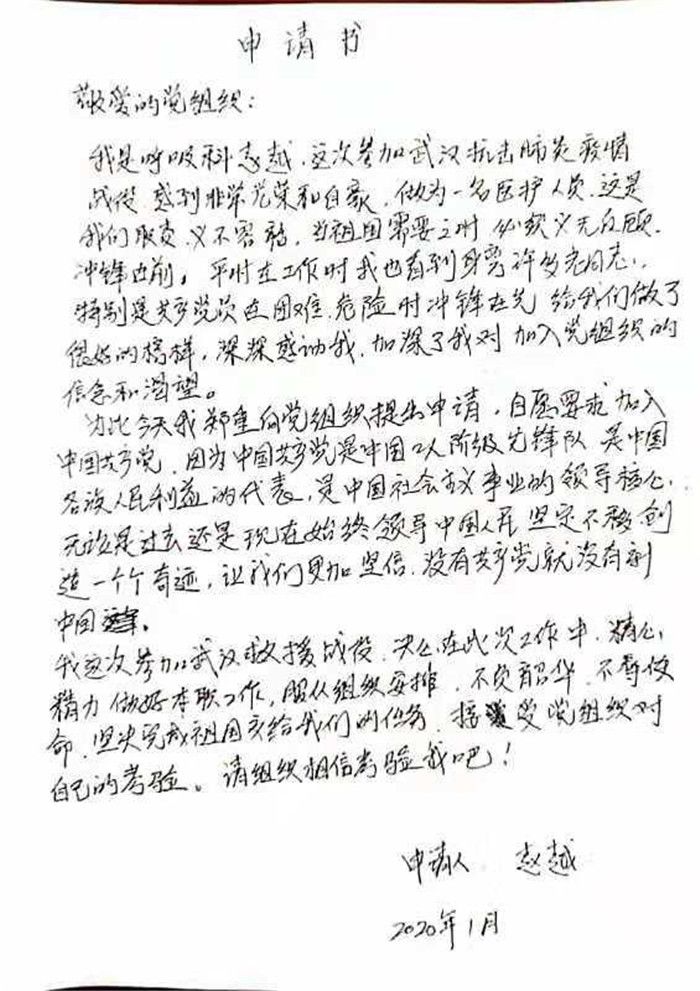 申请书
敬爱的党组织：
我是呼吸科赵越，这次参加武汉抗击肺炎疫情
战役，感到非常光荣和自豪，做为一名医护人员，这是
我们职责，义不容辞，当祖国需要之时，必须义无反顾，
冲锋向前。平时在工作时我也看到身旁许多老同志，
特别是共产党员在困难、危险时冲锋在先，给我们做了
很好的榜样，深深感动我，加深了我对加入党组织的
信念和渴望。
为此今天我郑重向党组织提出申请，自愿要求加入
中国共产党，因为中国共产党是中国工人阶级先锋队，是中国
各族人民利益的代表，是中国社会主义事业的领导核心，
无论是过去还是现在始终领导中国人民坚定不移创
造一个个奇迹，让我们更加坚信，没有共产党就没有新
中国。
我这次参加武汉救援战役，决心在此次工作中，精心
精力做好本职工作，服从组织安排，不负韶华，不辱使
命，坚决完成祖国交给我们的任务，接受党组织对
自己的考验。请组织相信考验我吧！
申请人 赵越
2020年1月